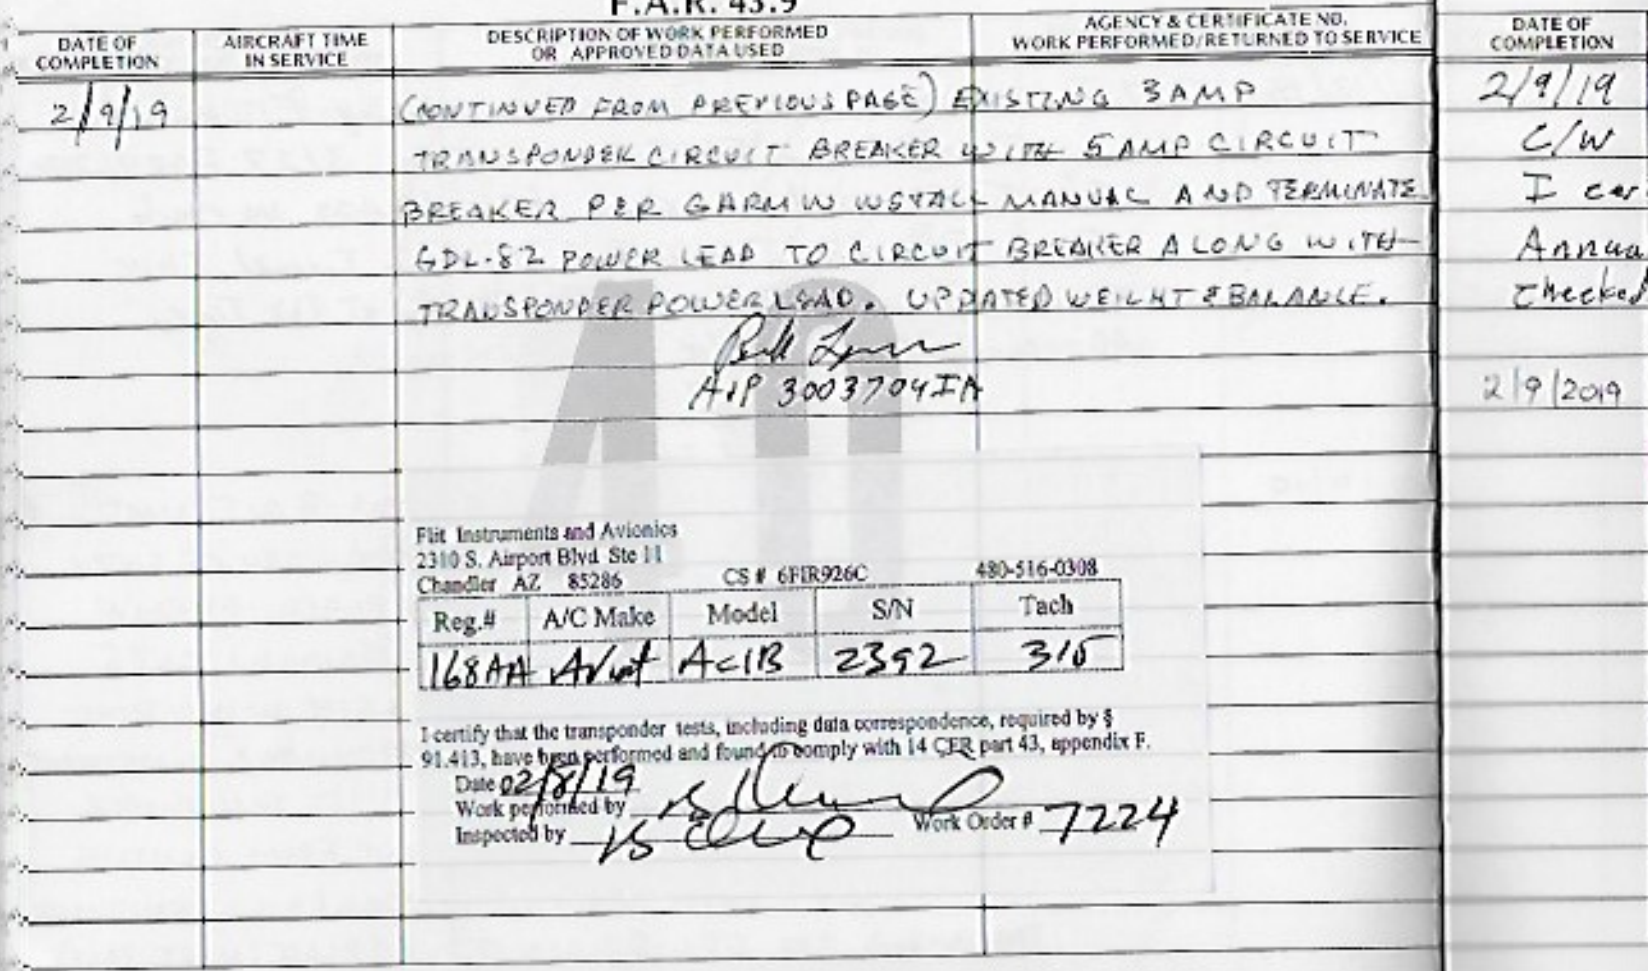 F.A.R. 43.9
DATE OF COMPLETION AIRCRAFT TIME IN SERVICE DESCRIPTION OF WORK PERFORMED OR APPROVED DATA USED AGENCY & CERTIFICATE NO. WORK PERFORMED/RETURNED TO SERVICE
2/9/19 (CONTINUED FROM PREVIOUS PAGE) EXISTING 3 AMP
TRANSPONDER CIRCUIT BREAKER WITH 5 AMP CIRCUIT
BREAKER PER GARMIN INSTALL MANUAL AND TERMINATE
GDL-82 POWER LEAD TO CIRCUIT BREAKER ALONG WITH
TRANSPONDER POWER LEAD. UPDATED WEIGHT & BALANCE.
A&P 3003704IA
Flit Instruments and Avionics
2310 S. Airport Blvd Ste 11
Chandler AZ 85286 CS # 6FIR926C 480-516-0308
Reg.# A/C Make Model S/N Tach
168AA AC1B 2392 315
I certify that the transponder tests, including data correspondence, required by §
91.413, have been performed and found to comply with 14 CFR part 43, appendix F.
Date 02/8/19
Work performed by
Inspected by Work Order # 7224
DATE OF COMPLETION
2/9/19
C/W
I cer
Annua
checked
2/9/2019